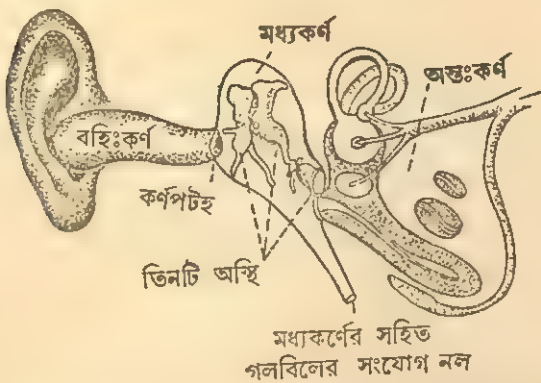 মধ্যকর্ণ
অন্তঃকর্ণ
বহিঃকর্ণ
কর্ণপটহ
তিনটি অস্থি
মধ্যকর্ণের সহিত
গলবিলের সংযোগ নল